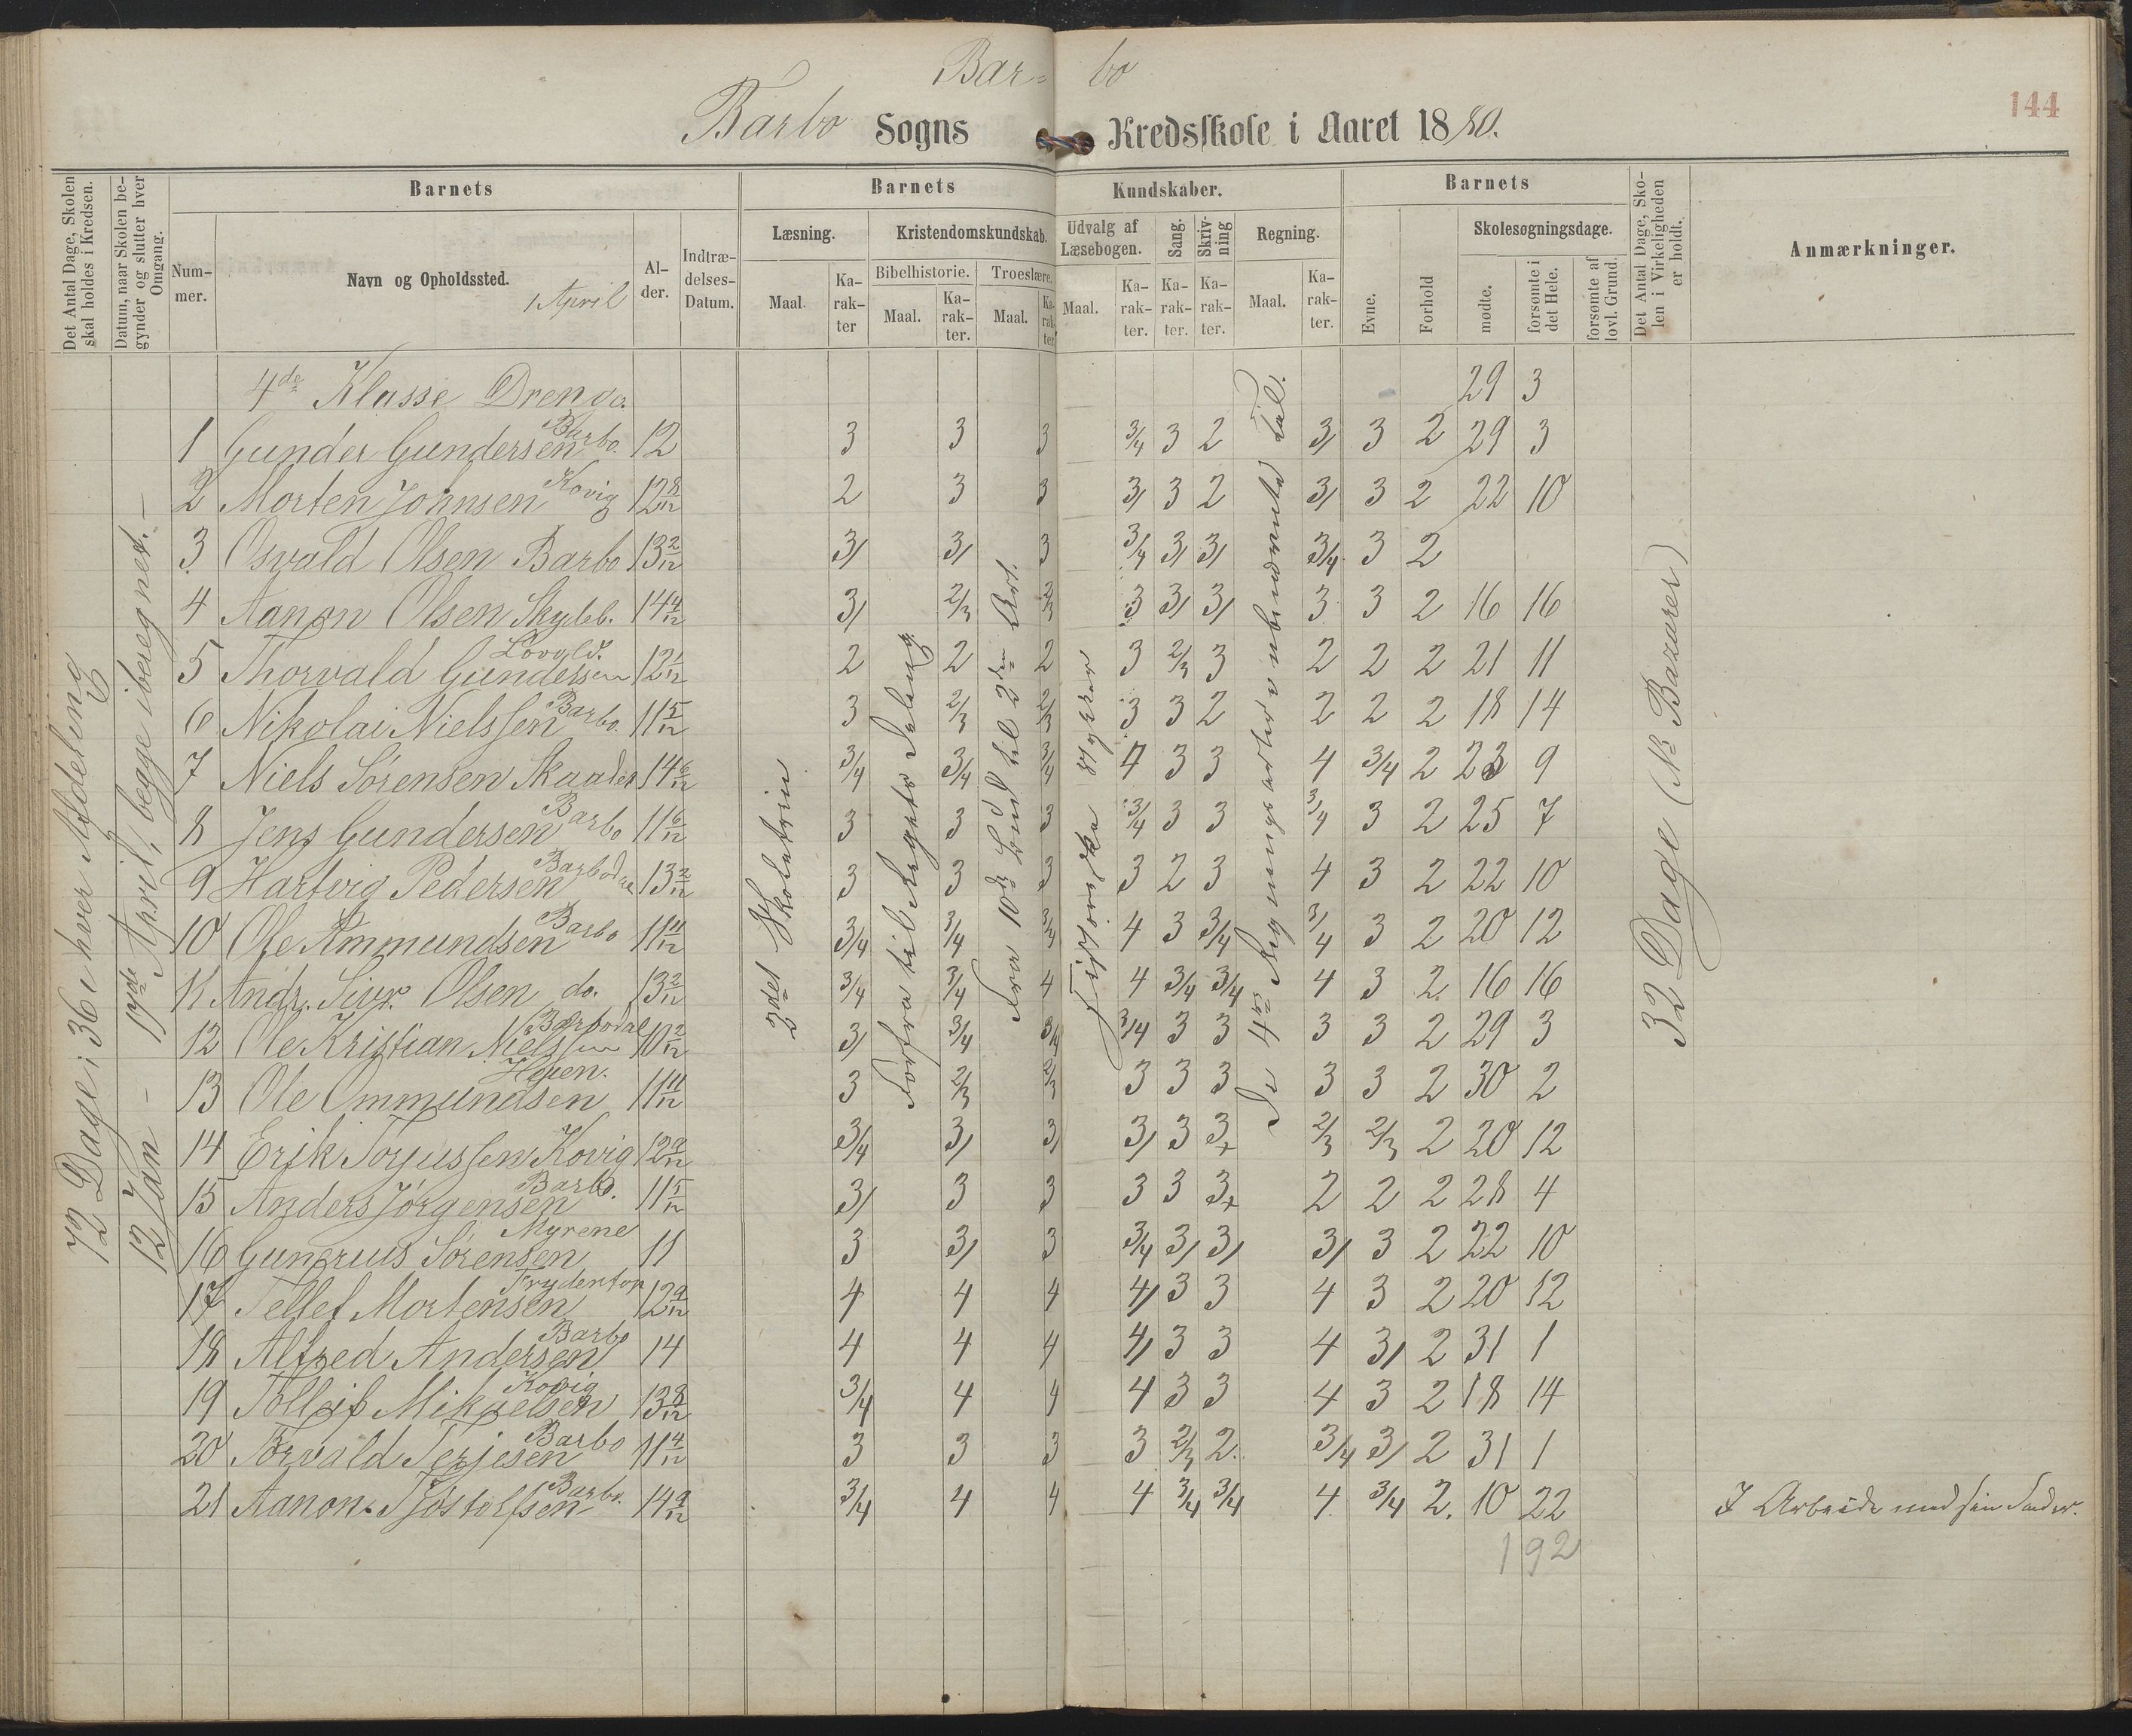 Bar- bo
144
Barbo Sogns Kredsskole i Aaret 1880.
Det Antal Dage, Skolen skal holdes i Kredsen.
Datum, naar Skolen begynder og slutter hver Omgang.
Barnets
Num-mer.
Navn og Opholdssted.
1 April
Al-der.
Indtræ-delses-Datum.
Barnets Kundskaber.
Læsning.
Maal. Ka-rak-ter
Kristendomskundskab.
Bibelhistorie. Troeslære.
Maal. Ka-rak-ter. Maal. Ka-rak-ter
Udvalg af Læsebogen.
Maal. Ka-rak-ter.
Sang. Ka-rak-ter.
Skriv-ning Ka-rak-ter.
Regning.
Maal. Ka-rak-ter.
Barnets
Evne. Forhold
Skolesøgningsdage.
mødte. forsømte i det Hele. forsømte af lovl. Grund.
Det Antal Dage, Sko-len i Virkeligheden er holdt.
Anmærkninger.
72 Dage i 36 i hver Afdeling
12 Jan - 17de April, begge iberegnet. -
2det Skoletrin
Forfra til Rigets Deling
Fra 10de Bud til 2den Art.
Historiske Stykker
De 4 Regningsarter i ubenævnte Tal.
32 Dage (
4de Klasse Drenge. 29 3
1 Gunder Gundersen Barbo. 12 3 3 3 3/4 3 2 3/ 3 2 29 3
2 Morten Johnsen Kovig 12 8/12 2 3 3 3/ 3 2 3/ 3 2 22 10
3 Osvald Olsen Barbo 13 2/12 3/ 3/ 3 3/4 3/ 3/ 3/4 3 2
4 Aanon Olsen 14 4/12 3/ 2/3 2/3 3 3/ 3/ 3 3 2 16 16
5 Thorvald Gunderssen 12 1/12 2 2 2 3 2/3 3 2 2 2 21 11
6 Nikolai Nielssen Barbo. 11 5/12 3 2/3 2/3 3 3 2 2 2 2 18 14
7 Niels Sørensen 14 6/12 3/4 3/4 3/4 4 3 3 4 3/4 2 23 9
8 Jens Gundersen Barbo 11 6/12 3 3 3 3/4 3 3 3/4 3 2 25 7
9 Hartvig Pedersen 13 2/12 3 3 3 3 2 3 4 3 2 22 10
10 Ole Ammundsen Barbo 11 11/12 3/4 3/4 3/4 4 3 3/4 3/4 3 2 20 12
11 Andr. Sivr. Olsen do. 13 2/12 3/4 3/4 4 4 3/4 3/4 4 3 2 16 16
12 Ole Kristian Nielssen Barbodal 10 2/12 3/ 3/4 3/4 3/4 3 3 3 3 2 29 3
13 Ole Ommundsen 11 11/12 3 2/3 2/3 3 3 3 3 3 2 30 2
14 Erik Torjussen Kovig 12 2/12 3/4 3/ 3/ 3/ 3 3+ 2/3 2/3 2 20 12
15 Anders Jörgensen Barbo. 11 5/12 3/ 3 3 3 3 3+ 2 2 2 28 4
16 Gunerius Sörensen Myrene 11 3 3/ 3 3/4 3/ 3/ 3/ 3 2 22 10
17 Tellef Mortensen 12 9/12 4 4 4 4/ 3 3 4 3 2 20 12
18 Alfred Andersen Barbo 14 4 4 4 4/ 3 3 4 3/ 2 31 1
19 Tolleif Mikaelsen Kovig 13 8/12 3/4 4 4 4 3 3 4 3 2 18 14
20 Torvald Terjesen Barbo 11 4/12 3 3 3 3 2/3 2. 3/4 3/ 2 31 1
21 Aanon Tjöstolfsen Barbo. 14 9/12 3/4 4 4 4 3/4 3/4 4 3/4 2. 10 22 I Arbeide med sin Fader.
192